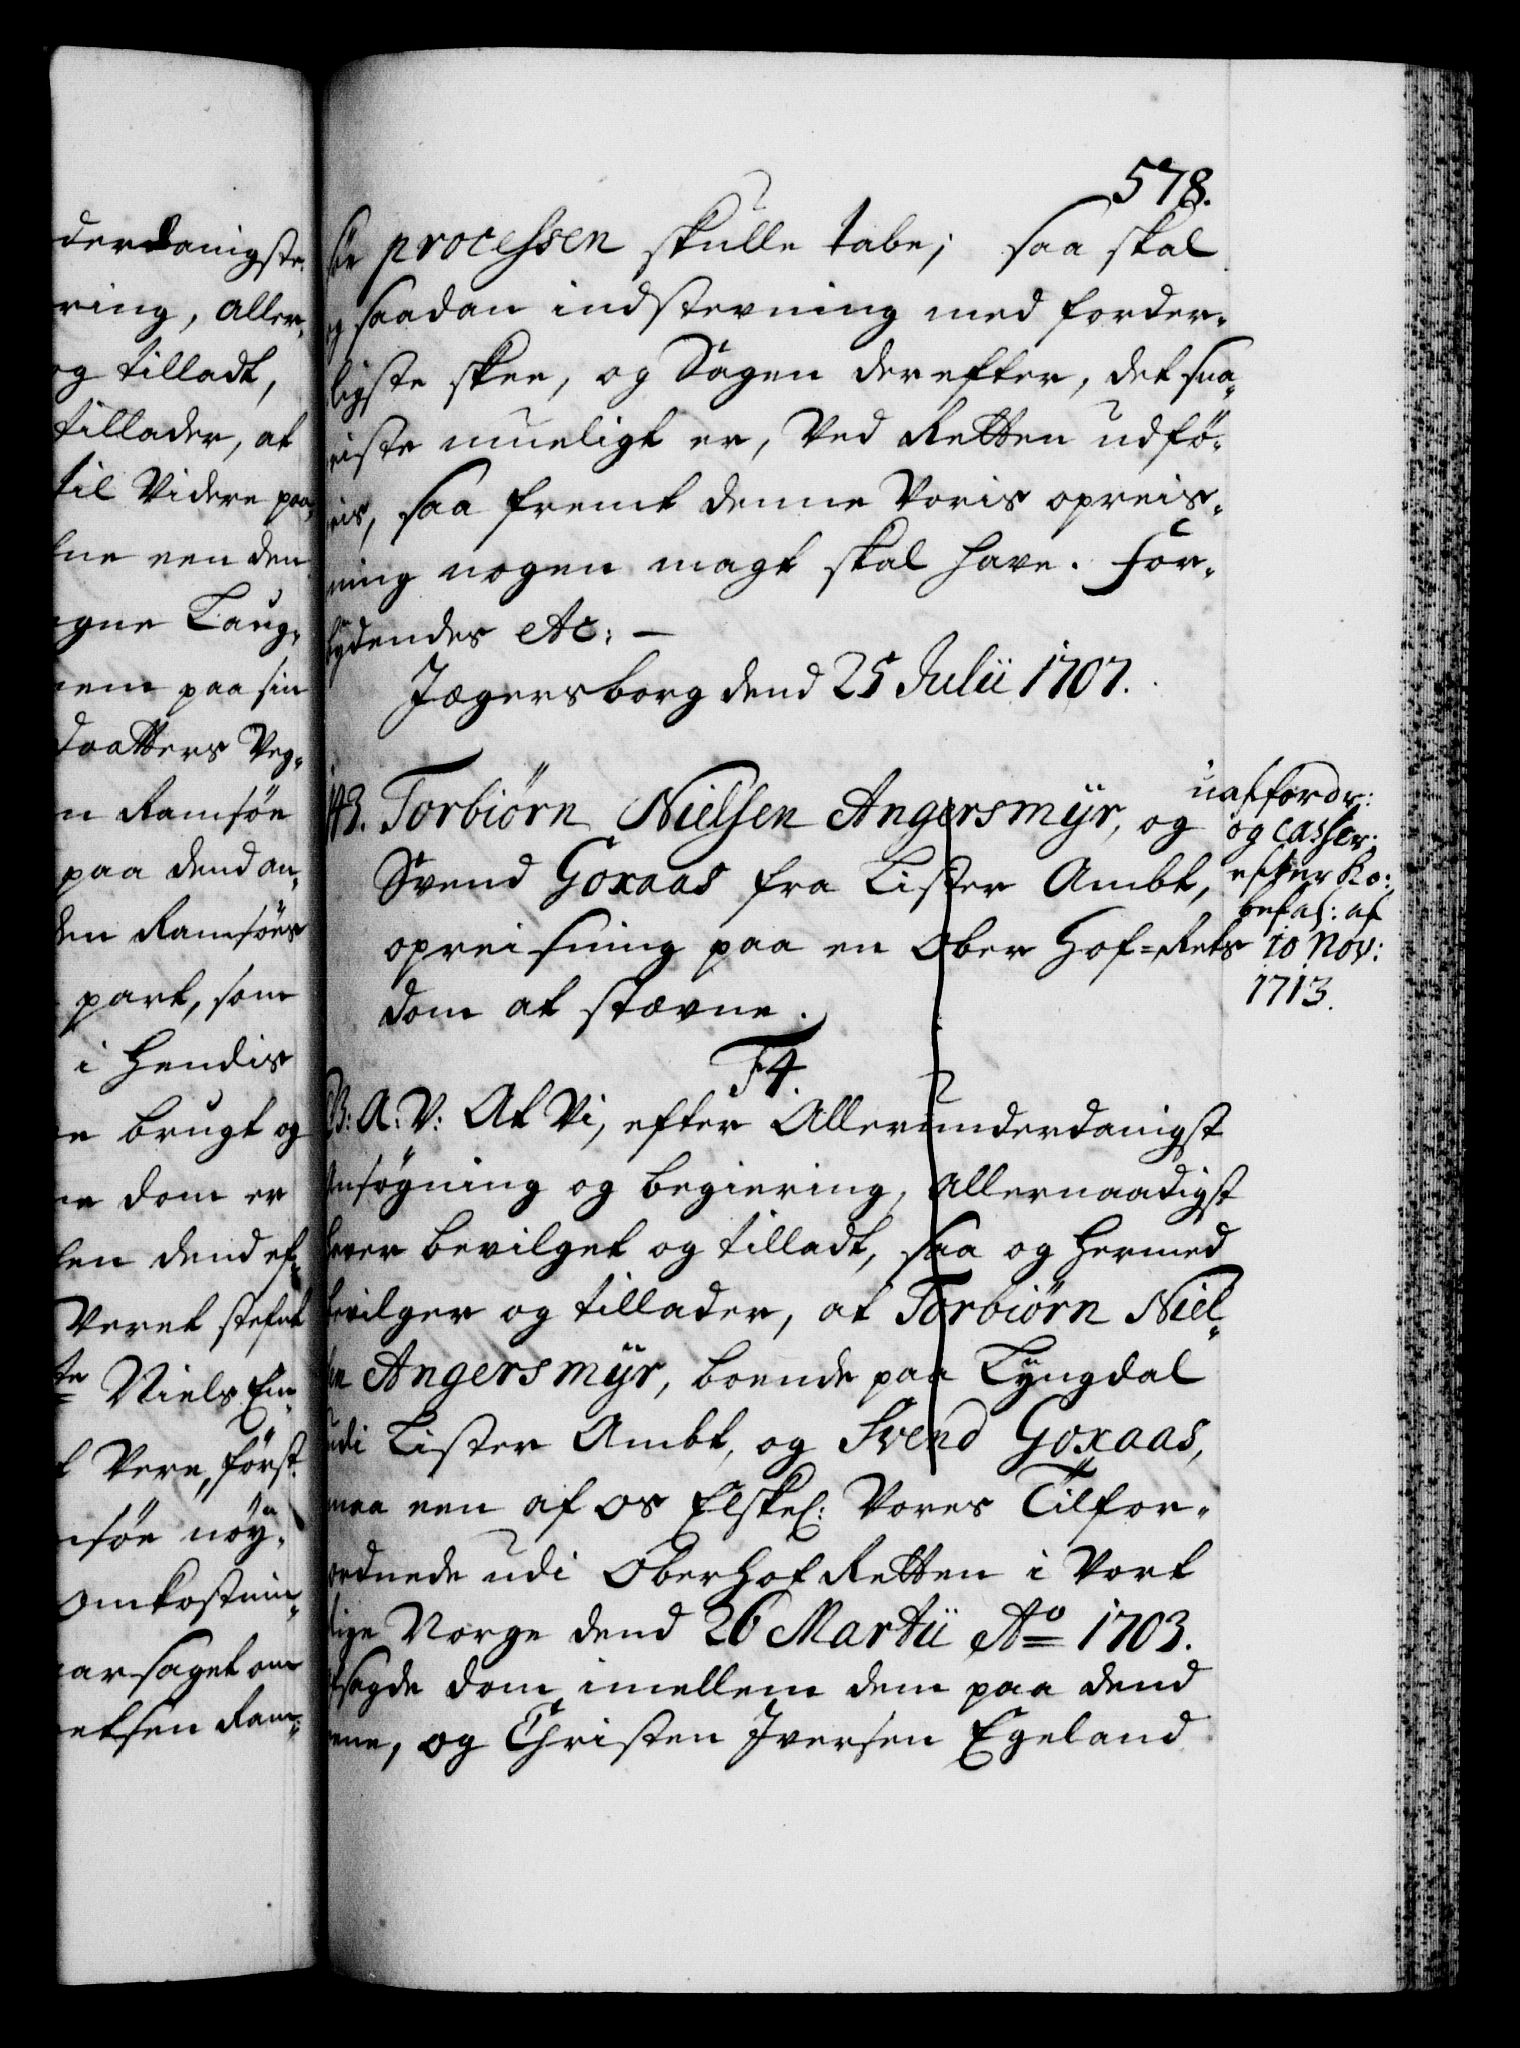 derdanigste
ring, aller-
og tilladt,
tillader, at
til Videre paa-
een den
egne Laug-
paa sin
daatters Veg-
n Ramsøe
paa dend an-
den Ramsøes
part, som
i Hendis
brugt og
dom er
len dend ef-
Veret stefnt
Niels Em-
t Vere, først
msøe nøy-
omkostnin-
aarsaget om
etsen Ram-
578.
processen skulle tabe; saa skal
og saadan indstevning med forder-
ligste skee, og Sagen derefter, det sna-
riste mueligt er, Ved Retten udfø-
ris, saa fremt denne Voris opreis-
ning nogen magt skal have. For-
bydendes etc: —
Jægersborg dend 25 Julii 1707.
143. Torbiørn Nielsen Angersmÿr, og
Svend Goxaas fra Lister Ambt,
opreisning paa en Ober Hof-Rets
dom at stævne.
uaffordr:
og casser:
efter Ko:
befal: af
10 Nov:
1713.
F4.
G: A: V: At Vi, efter Allerunderdanigst
Ansøgning og begiering, allernaadigst
haver bevilget og tilladt, saa og hermed
bevilger og tillader, at Torbiørn Niel-
sen Angersmÿr, boende paa Lyngdal
udi Lister Ambt, og Svend Goxaas,
maa een af os Elskel: Vores Tilfor-
ordnede udi OberHofRetten i Vort
Rige Norge dend 26 Martii Ao 1703.
afsagde dom imellem dem paa dend
eene, og Christen Iversen Egeland